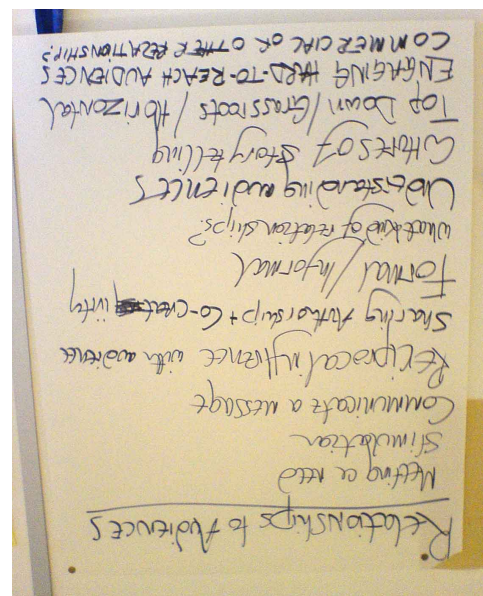 RELATIONSHIPS to AUDIENCES
Meeting a NEED
Stimulation
Communicate a message
Reciprocal influence with audience
Sharing Authorship + Co-creativity
Formal / Informal
What kind of relationships?
Understanding audiences
storytelling
Top Down / Grassroots / Horizontal
ENGAGING HARD-TO-REACH AUDIENCES
COMMERCIAL OR OTHER RELATIONSHIP?